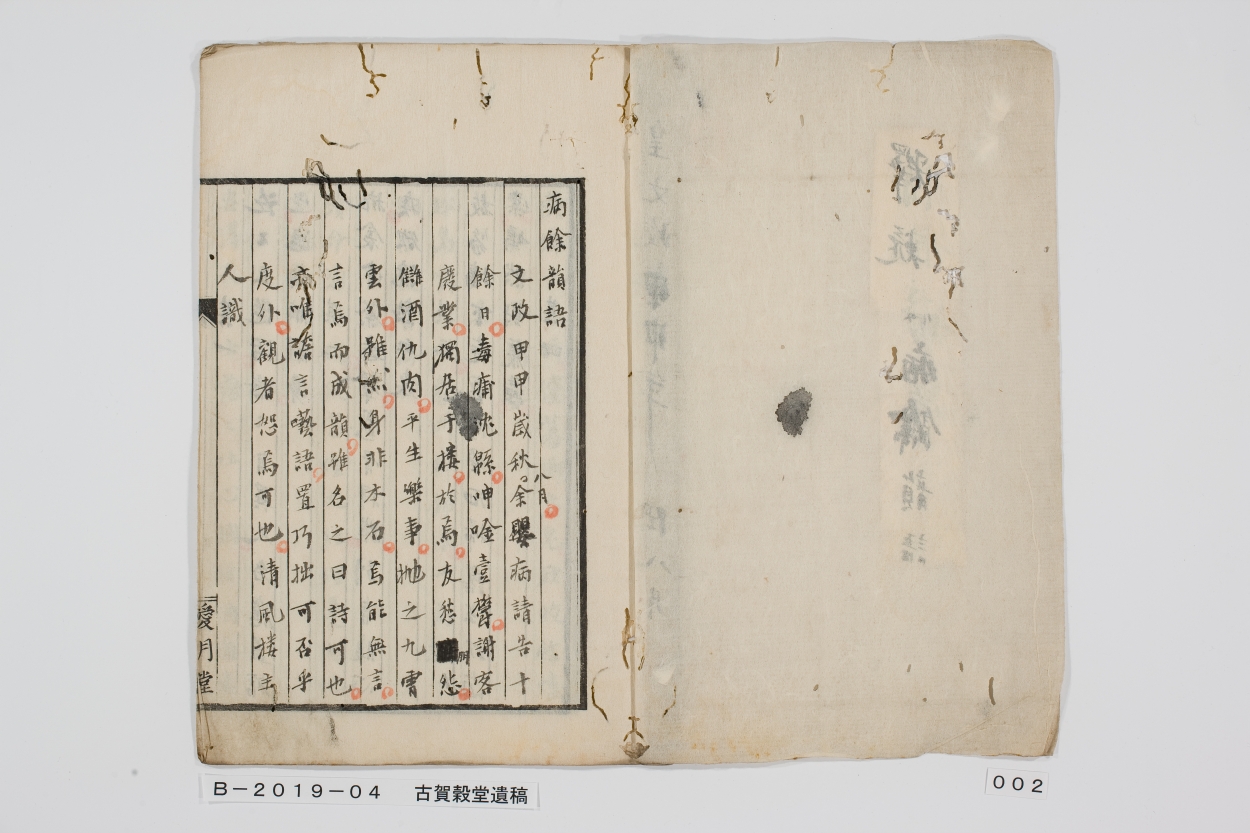 病餘韻語
文政甲甲歳秋八月余嬰病請告十
餘日毒痡沈緜呻唫壹欝謝客
廢業獨居于樓於焉友愁朋怨
讎酒仇肉平生樂事抛之九霄
雲外雖然身非木石焉能無言
言焉而成韻雖名之曰詩可也
亦唯譫言囈語置巧拙可否乎
度外觀者恕焉可也清風楼主
人識
愛月堂
B－2019－04 古賀穀堂遺稿
002